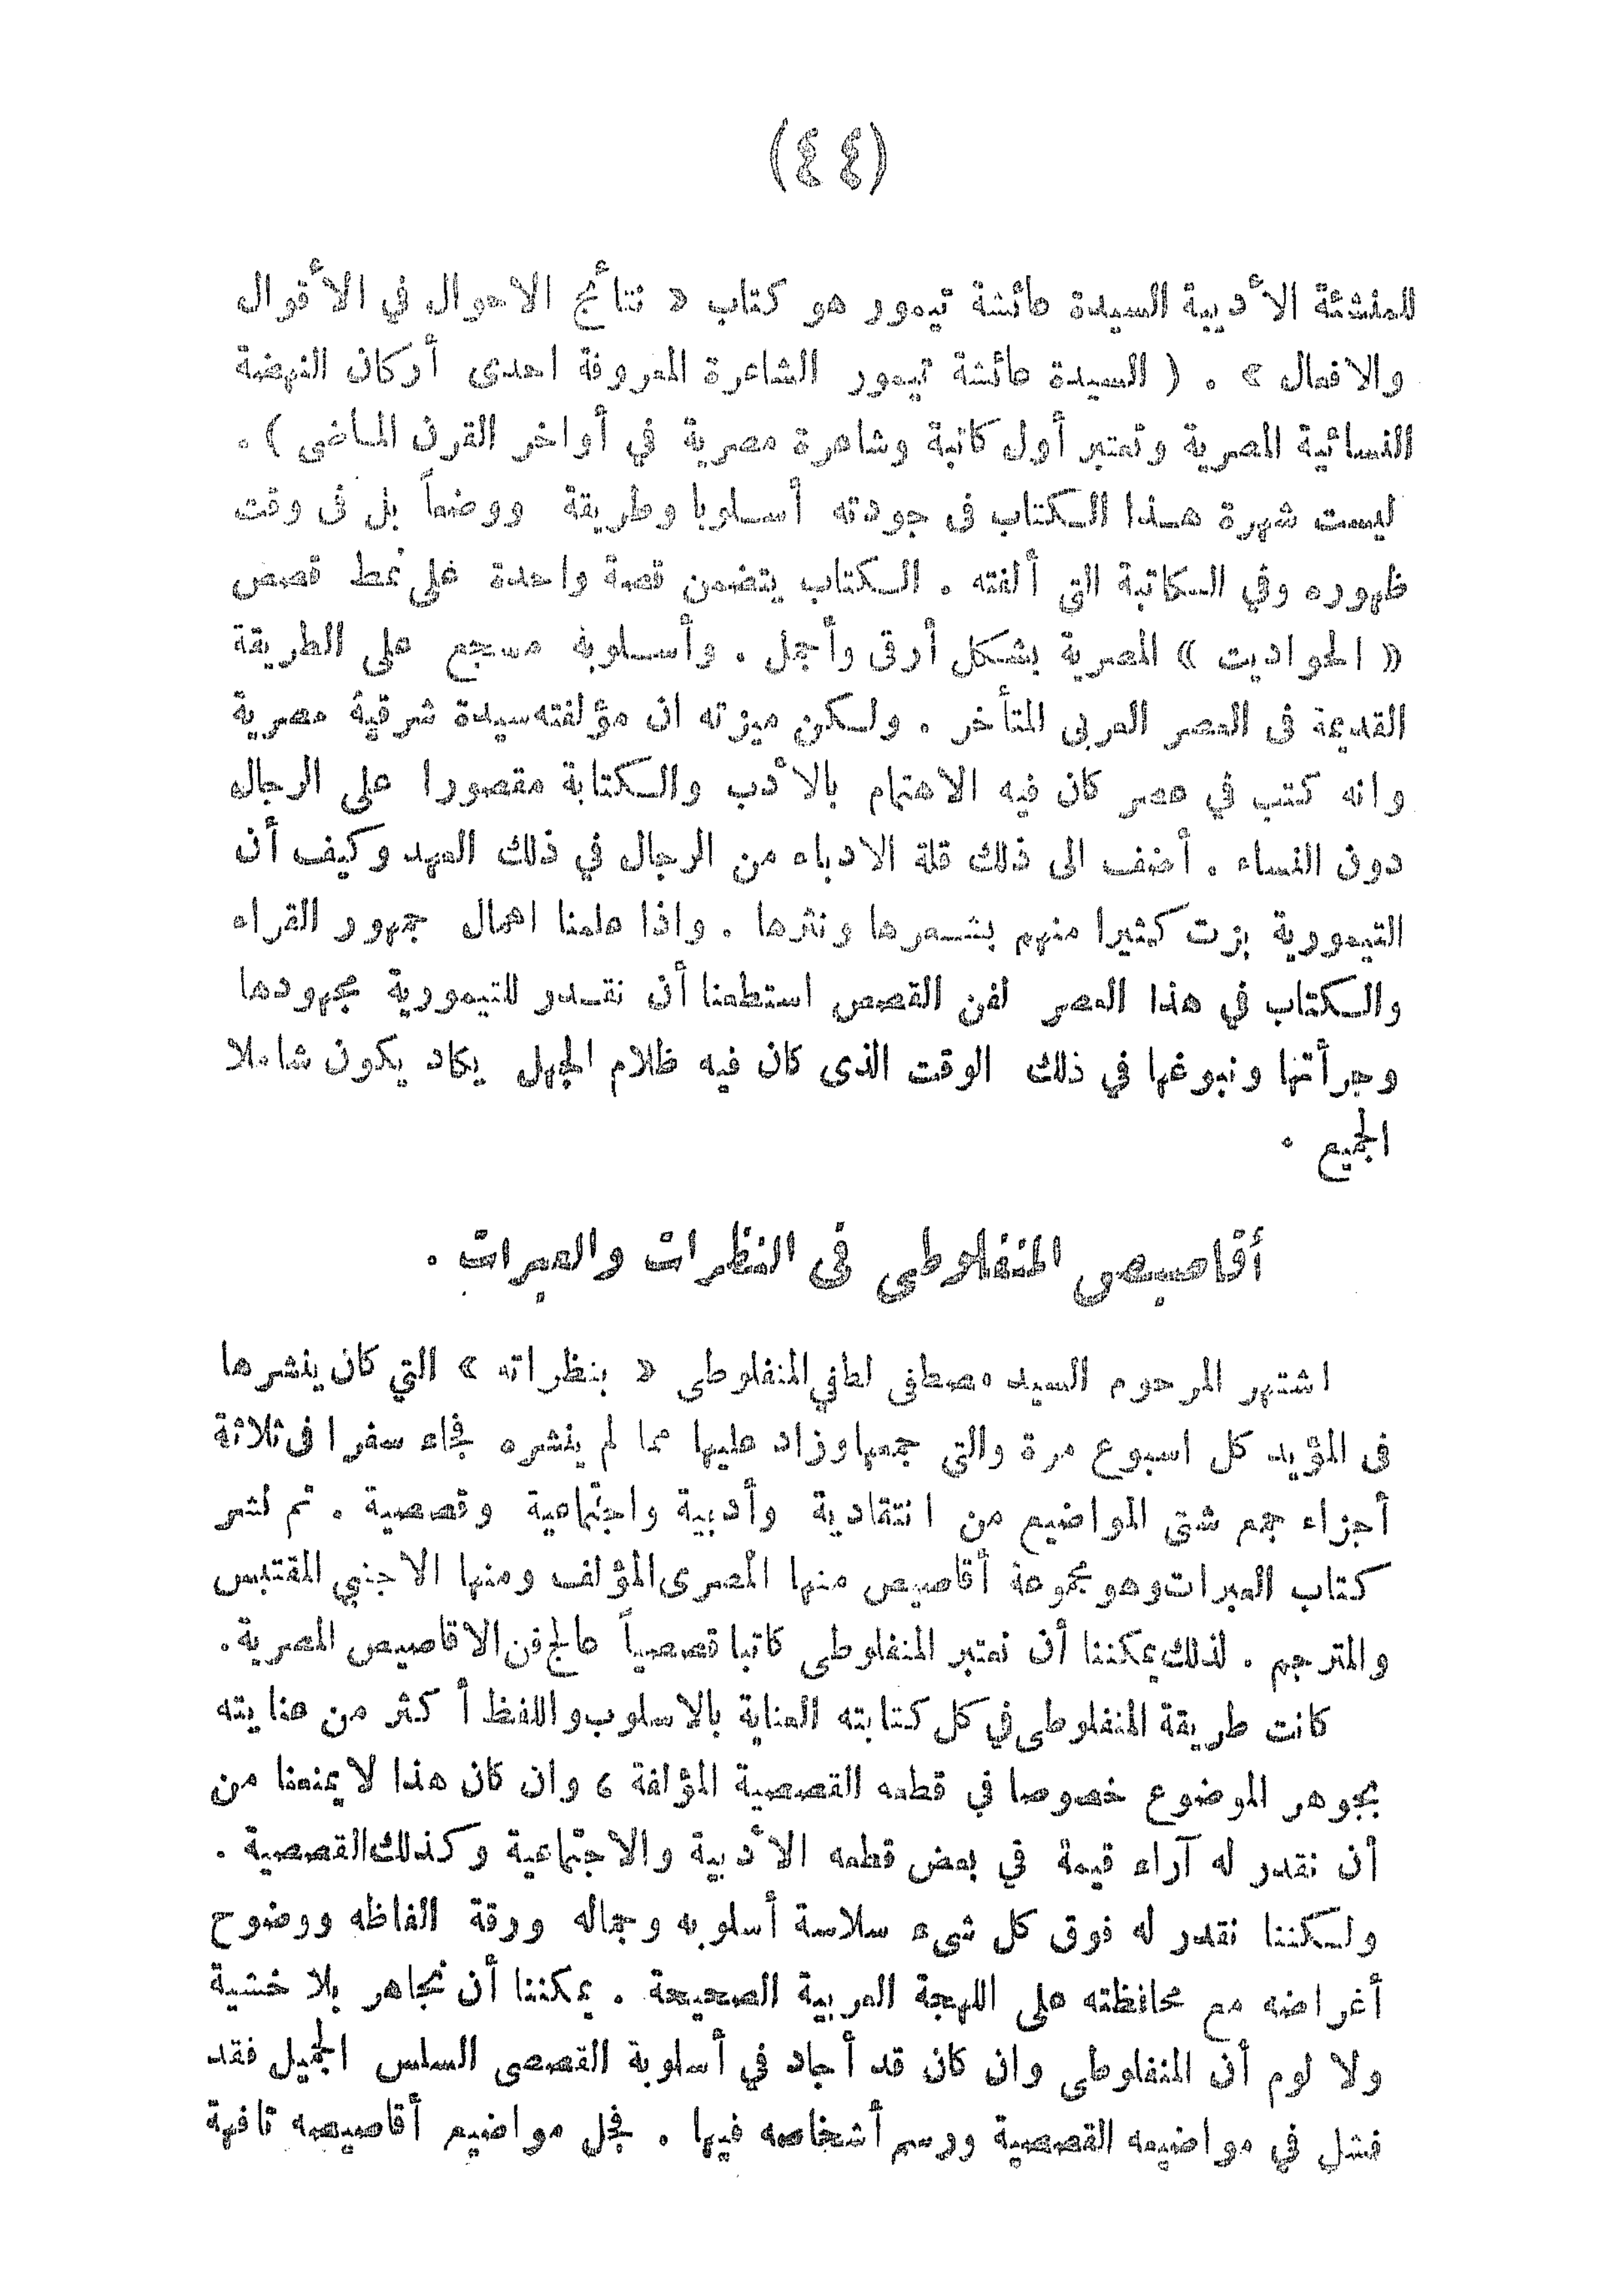 (٤٤)
للمنشئة الأديبة السيدة عائشة تيمور هو كتاب « نتائج الاحوال في الأقوال
والافعال » . ( السيدة عائشة تيمور الشاعرة المعروفة احدى أركان النهضة
النسائية المصرية وتعتبر أول كاتبة وشاعرة مصرية في أواخر القرن الماضى ) .
ليست شهرة هذا الكتاب فى جودته أسلوبا وطريقة ووضعاً بل فى وقت
ظهوره وفي الكاتبة التى ألفته . الكتاب يتضمن قصة واحدة على نمط قصص
« الحواديت » المصرية بشكل أرق وأجمل . وأسلوبه مسجع على الطريقة
القديمة فى العصر العربى المتأخر . ولكن ميزته ان مؤلفته سيدة شرقية مصرية
وانه كتب في عصر كان فيه الاهتمام بالأدب والكتابة مقصورا على الرجال
دون النساء . أضف الى ذلك قلة الادباء من الرجال في ذلك العهد وكيف أن
التيمورية بزت كثيرا منهم بشعرها ونثرها . واذا علمنا اهمال جمهور القراء
والكتاب في هذا العصر لفن القصص استطعنا أن نقدر للتيمورية مجهودها
وجرأتها ونبوغها في ذلك الوقت الذى كان فيه ظلام الجهل يكاد يكون شاملا
الجميع .
أقاصيص المنفلوطى فى النظرات والعبرات .
اشتهر المرحوم السيد مصطفى لطفي المنفلوطى « بنظراته » التي كان ينشرها
فى المؤيد كل اسبوع مرة والتي جمعها وزاد عليها مما لم ينشره فجاء سفرا فى ثلاثة
أجزاء جمع شتى المواضيع من انتقادية وأدبية واجتماعية وقصصية . ثم نشر
كتاب العبرات وهو مجموعة أقاصيص منها المصرى المؤلف ومنها الاجنبي المقتبس
والمترجم . لذلك يمكننا أن نعتبر المنفلوطى كاتبا قصصياً عالج فن الاقاصيص المصرية .
كانت طريقة المنفلوطى في كل كتابته العناية بالاسلوب واللفظ أكثر من عنايته
بجوهر الموضوع خصوصا في قطعه القصصية المؤلفة ، وان كان هذا لا يمنعنا من
أن نقدر له آراء قيمة في بعض قطعه الأدبية والاجتماعية وكذلك القصصية .
ولكننا نقدر له فوق كل شىء سلاسة أسلوبه وجماله ورقة الفاظه ووضوح
أغراضه مع محافظته على اللهجة العربية الصحيحة . يمكننا أن نجاهر بلا خشية
ولا لوم أن المنفلوطى وان كان قد أجاد في أسلوبة القصصى السلس الجميل فقد
فشل في مواضيعه القصصية ورسم أشخاصه فيها . فجل مواضيع أقاصيصه تافهة